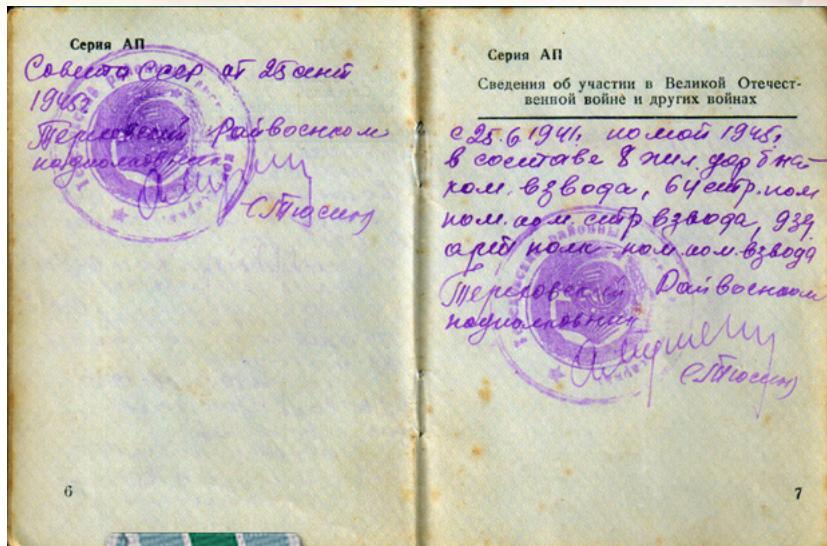 Серия АП
Совета СССР от 25 сент
1945г.
Терновский Райвоенком
подполковник
(Тюсин)
6
Серия АП
Сведения об участии в Великой Отечест-
венной войне и других войнах
с 25.6.1941г. по май 1945г.
в составе 8
ком. взвода, 64 стр. полк
пом. ком. стр взвода, 939
арт полк - пом. ком. взвода
Терновский Райвоенком
подполковник
(Тюсин)
7